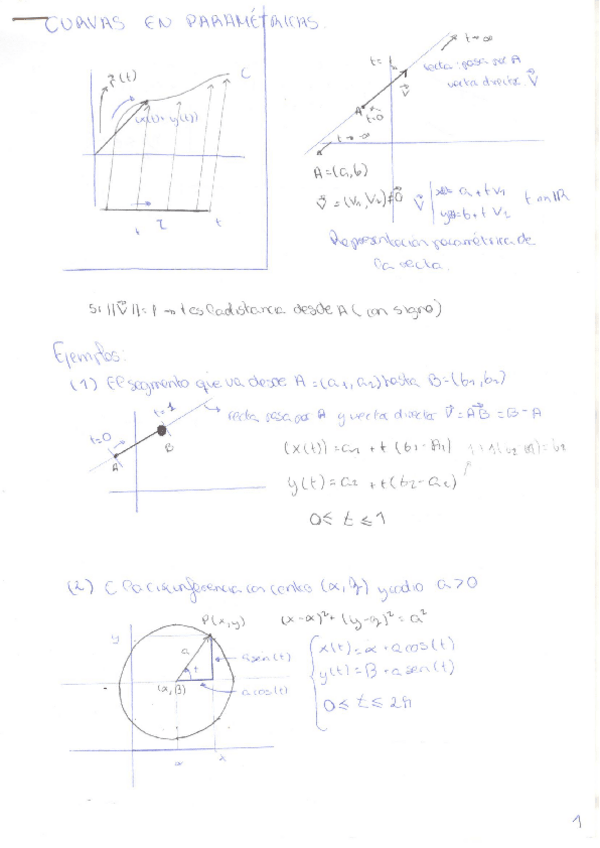 CURVAS EN PARAMÉTRICAS.
r(t)
C
(x(t), y(t))
t
t→∞
t=
recta: pasa por A
vector director V⃗
V⃗
A
t=0
t→-∞
A=(a,b)
V⃗=(V1,V2)≠0⃗
x= a + t V1
y= b + t V2
t en IR
Representación paramétrica de
la recta.
Si ||V⃗||=1 → t es la distancia desde A (con signo)
Ejemplos:
(1) El segmento que va desde A=(a1,a2) hasta B=(b1,b2)
t=1
t=0
A
B
recta pasa por A y vector director V⃗=AB⃗=B-A
(x(t))=a1 + t (b1-a1)
y(t)=a2 + t(b2-a2)
0≤ t ≤1
(2) C la circunferencia con centro (α,β) y radio a>0
P(x,y)
(x-α)²+(y-β)²=a²
y
a
t
a sen(t)
a cos(t)
(α,β)
α
x
x(t)=α+a cos(t)
y(t)=β+a sen(t)
0≤ t ≤2π
1